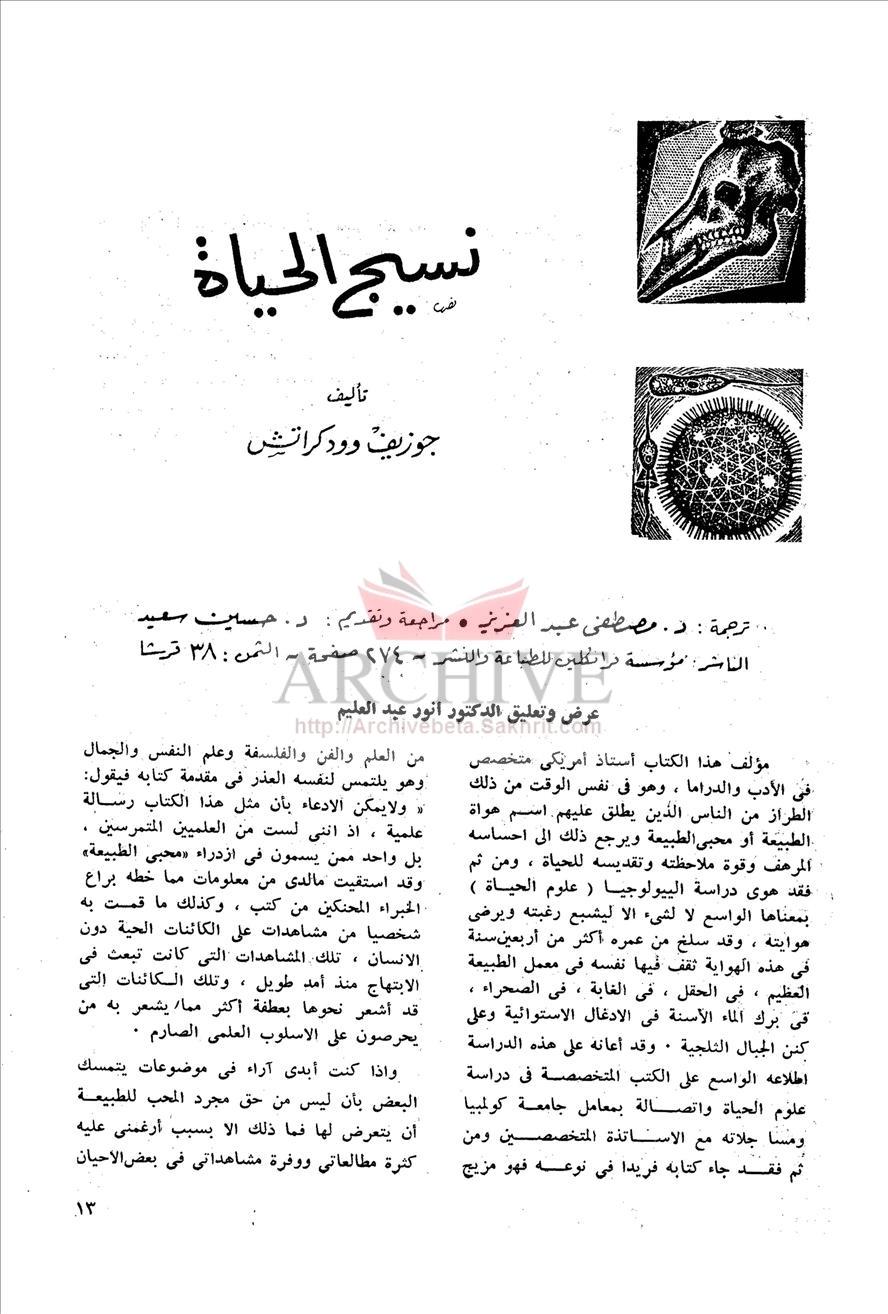 نسيج الحياة
تأليف
جوزيف وود كراتش
ترجمة : د. مصطفى عبد العزيز • مراجعة وتقديم : د. حسين سعيد
الناشر : مؤسسة فرانكلين للطباعة والنشر - ٢٧٤ صفحة - الثمن : ٣٨ قرشا
ARCHIVE
عرض وتعليق الدكتور أنور عبد العليم
http://Archivebeta.Sakhrit.com
مؤلف هذا الكتاب أستاذ أمريكى متخصص
فى الأدب والدراما ، وهو فى نفس الوقت من ذلك
الطراز من الناس الذين يطلق عليهم اسم هواة
الطبيعة أو محبى الطبيعة ويرجع ذلك الى احساسه
المرهف وقوة ملاحظته وتقديسه للحياة ، ومن ثم
فقد هوى دراسة البيولوجيا ( علوم الحياة )
بمعناها الواسع لا لشىء الا ليشبع رغبته ويرضى
هوايته ، وقد سلخ من عمره أكثر من أربعين سنة
فى هذه الهواية ثقف فيها نفسه فى معمل الطبيعة
العظيم ، فى الحقل ، فى الغابة ، فى الصحراء ،
فى برك الماء الآسنة فى الادغال الاستوائية وعلى
كنن الجبال الثلجية . وقد أعانه على هذه الدراسة
اطلاعه الواسع على الكتب المتخصصة فى دراسة
علوم الحياة واتصالة بمعامل جامعة كولمبيا
ومسا جلاته مع الاساتذة المتخصصين ومن
ثم فقد جاء كتابه فريدا فى نوعه فهو مزيج
من العلم والفن والفلسفة وعلم النفس والجمال
وهو يلتمس لنفسه العذر فى مقدمة كتابه فيقول:
« ولايمكن الادعاء بأن مثل هذا الكتاب رسالة
علمية ، اذ اننى لست من العلميين المتمرسين ،
بل واحد ممن يسمون فى ازدراء «محبى الطبيعة»
وقد استقيت مالدى من معلومات مما خطه يراع
الخبراء المحنكين من كتب ، وكذلك ما قمت به
شخصيا من مشاهدات على الكائنات الحية دون
الانسان ، تلك المشاهدات التى كانت تبعث فى
الابتهاج منذ أمد طويل ، وتلك الكائنات التى
قد أشعر نحوها بعطفة أكثر مما يشعر به من
يحرصون على الاسلوب العلمى الصارم .
واذا كنت أبدى آراء فى موضوعات يتمسك
البعض بأن ليس من حق مجرد المحب للطبيعة
أن يتعرض لها فما ذلك الا بسبب أرغمنى عليه
كثرة مطالعاتي ووفرة مشاهداتى فى بعض الاحيان
١٣